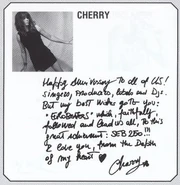 CHERRY
Happy Anniversary to all of US!
Singers, Producers, Labels and Djs.
But my best wishes goes to you:
"EUROBEATERS" which, faithfully,
followed and lead us all, to this
great achievement: SEB 250!!!
I love you, from the Depths
of my heart
Cherry